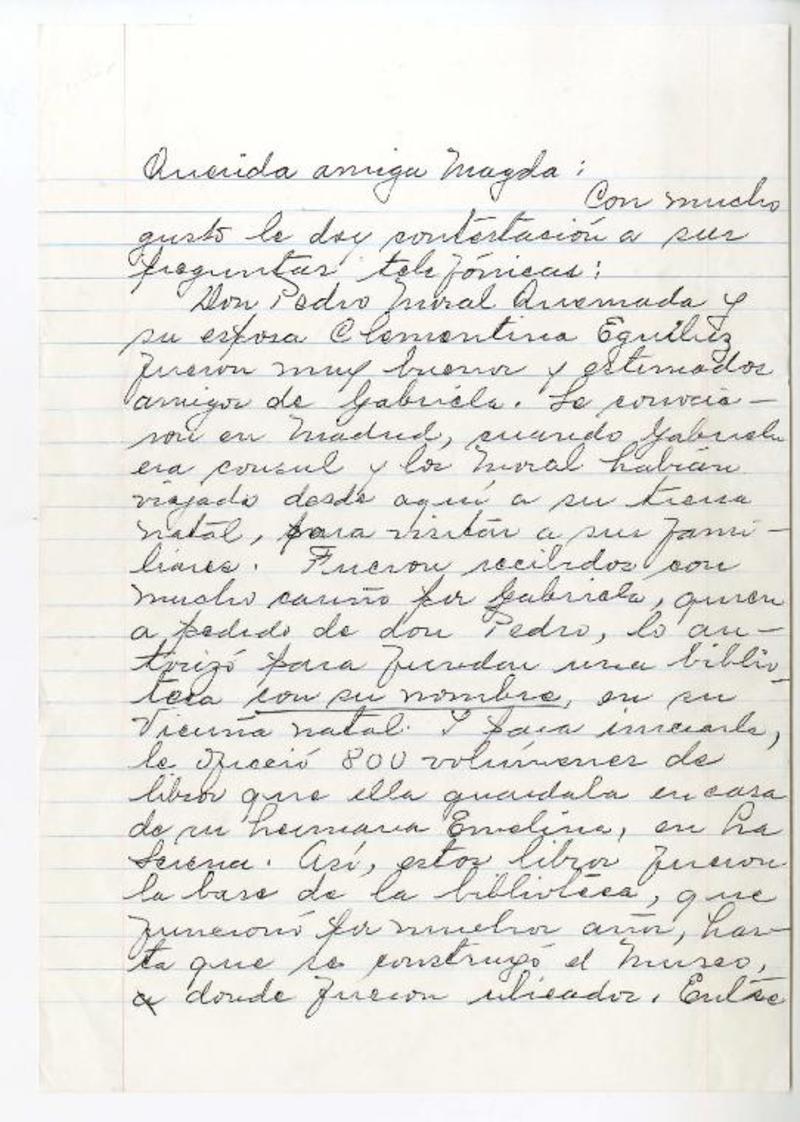 Querida amiga Magda:
Con mucho
gusto le doy contestación a sus
preguntas telefónicas:
Don Pedro Moral Quemada y
su esposa Clementina Eguíluz
fueron muy buenos y estimados
amigos de Gabriela. Se conocie-
ron en Madrid, cuando Gabriela
era consul y los Moral habían
viajado desde aquí a su tierra
natal, para visitar a sus fami-
liares. Fueron recibidos con
mucho cariño por Gabriela, quien
a pedido de don Pedro, lo au-
torizó para fundar una biblio-
teca con su nombre, en su
Vicuña natal. Y para iniciarla,
le ofreció 800 volúmenes de
libros que ella guardaba en casa
de su hermana Emelina, en La
Serena. Así, estos libros fueron
la base de la biblioteca, que
funcionó por muchos años, has-
ta que se construyó el Museo,
a donde fueron ubicados. Entre